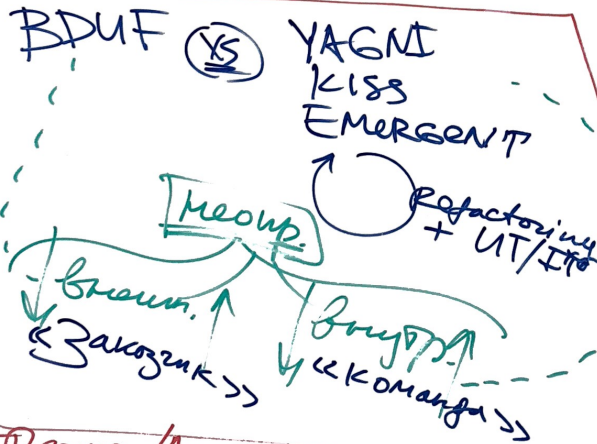 BDUF VS YAGNI
KISS
EMERGENT
Refactoring
+ UT/IT
неопр.
внешн. внутр.
«Заказчик» «Команда»